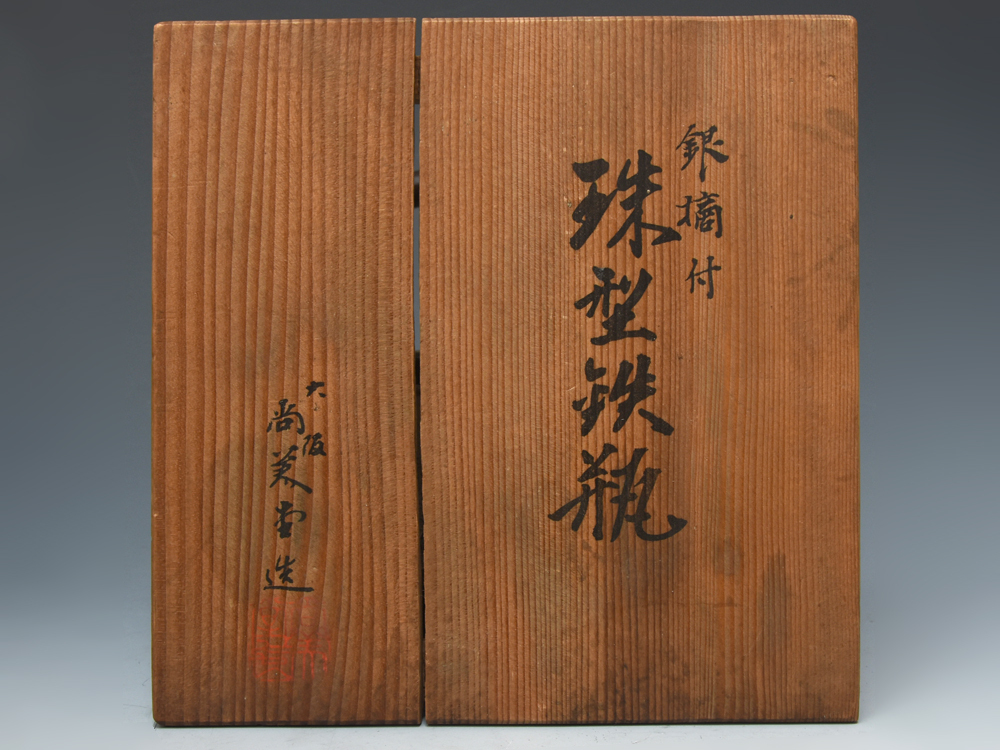 銀摘付
珠型鉄瓶
大阪
尚美堂造